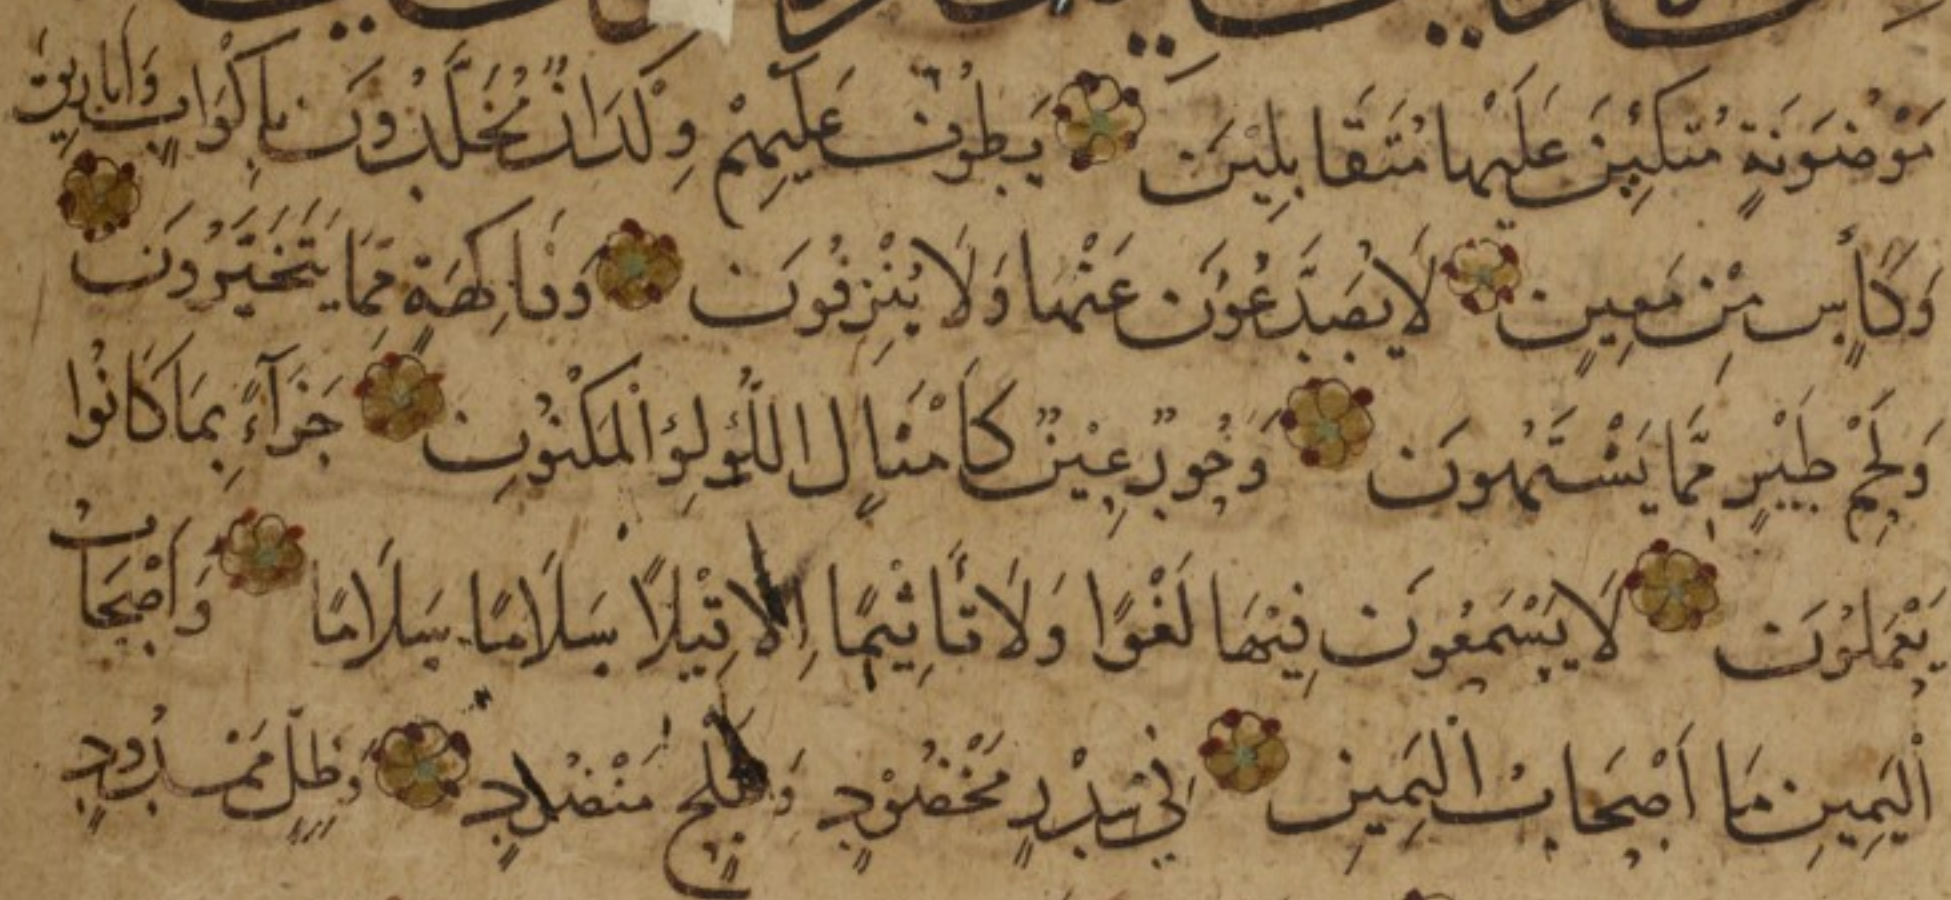 مَوْضُونَةٍ مُتَّكِئِينَ عَلَيْهَا مُتَقَابِلِيْنَ يَطُوفُ عَلَيْهِمْ وِلْدَانٌ مُخَلَّدُونَ بِأَكْوَابٍ وَأَبَارِيقَ
وَكَأْسٍ مِنْ مَعِينٍ لَا يُصَدَّعُونَ عَنْهَا وَلَا يُنْزِفُونَ وَفَاكِهَةٍ مِمَّا يَتَخَيَّرُونَ
وَلَحْمِ طَيْرٍ مِمَّا يَشْتَهُونَ وَحُورٌ عِيْنٌ كَأَمْثَالِ اللُّؤْلُؤِ الْمَكْنُونِ جَزَآءً بِمَا كَانُوا
يَعْمَلُونَ لَا يَسْمَعُونَ فِيْهَا لَغْوًا وَلَا تَأْثِيْمًا إِلَّا قِيْلًا سَلَامًا سَلَامًا وَأَصْحَابُ
الْيَمِينِ مَا أَصْحَابُ الْيَمِينِ فِي سِدْرٍ مَخْضُوْدٍ وَطَلْحٍ مَنْضُودٍ وَظِلٍّ مَمْدُودٍ